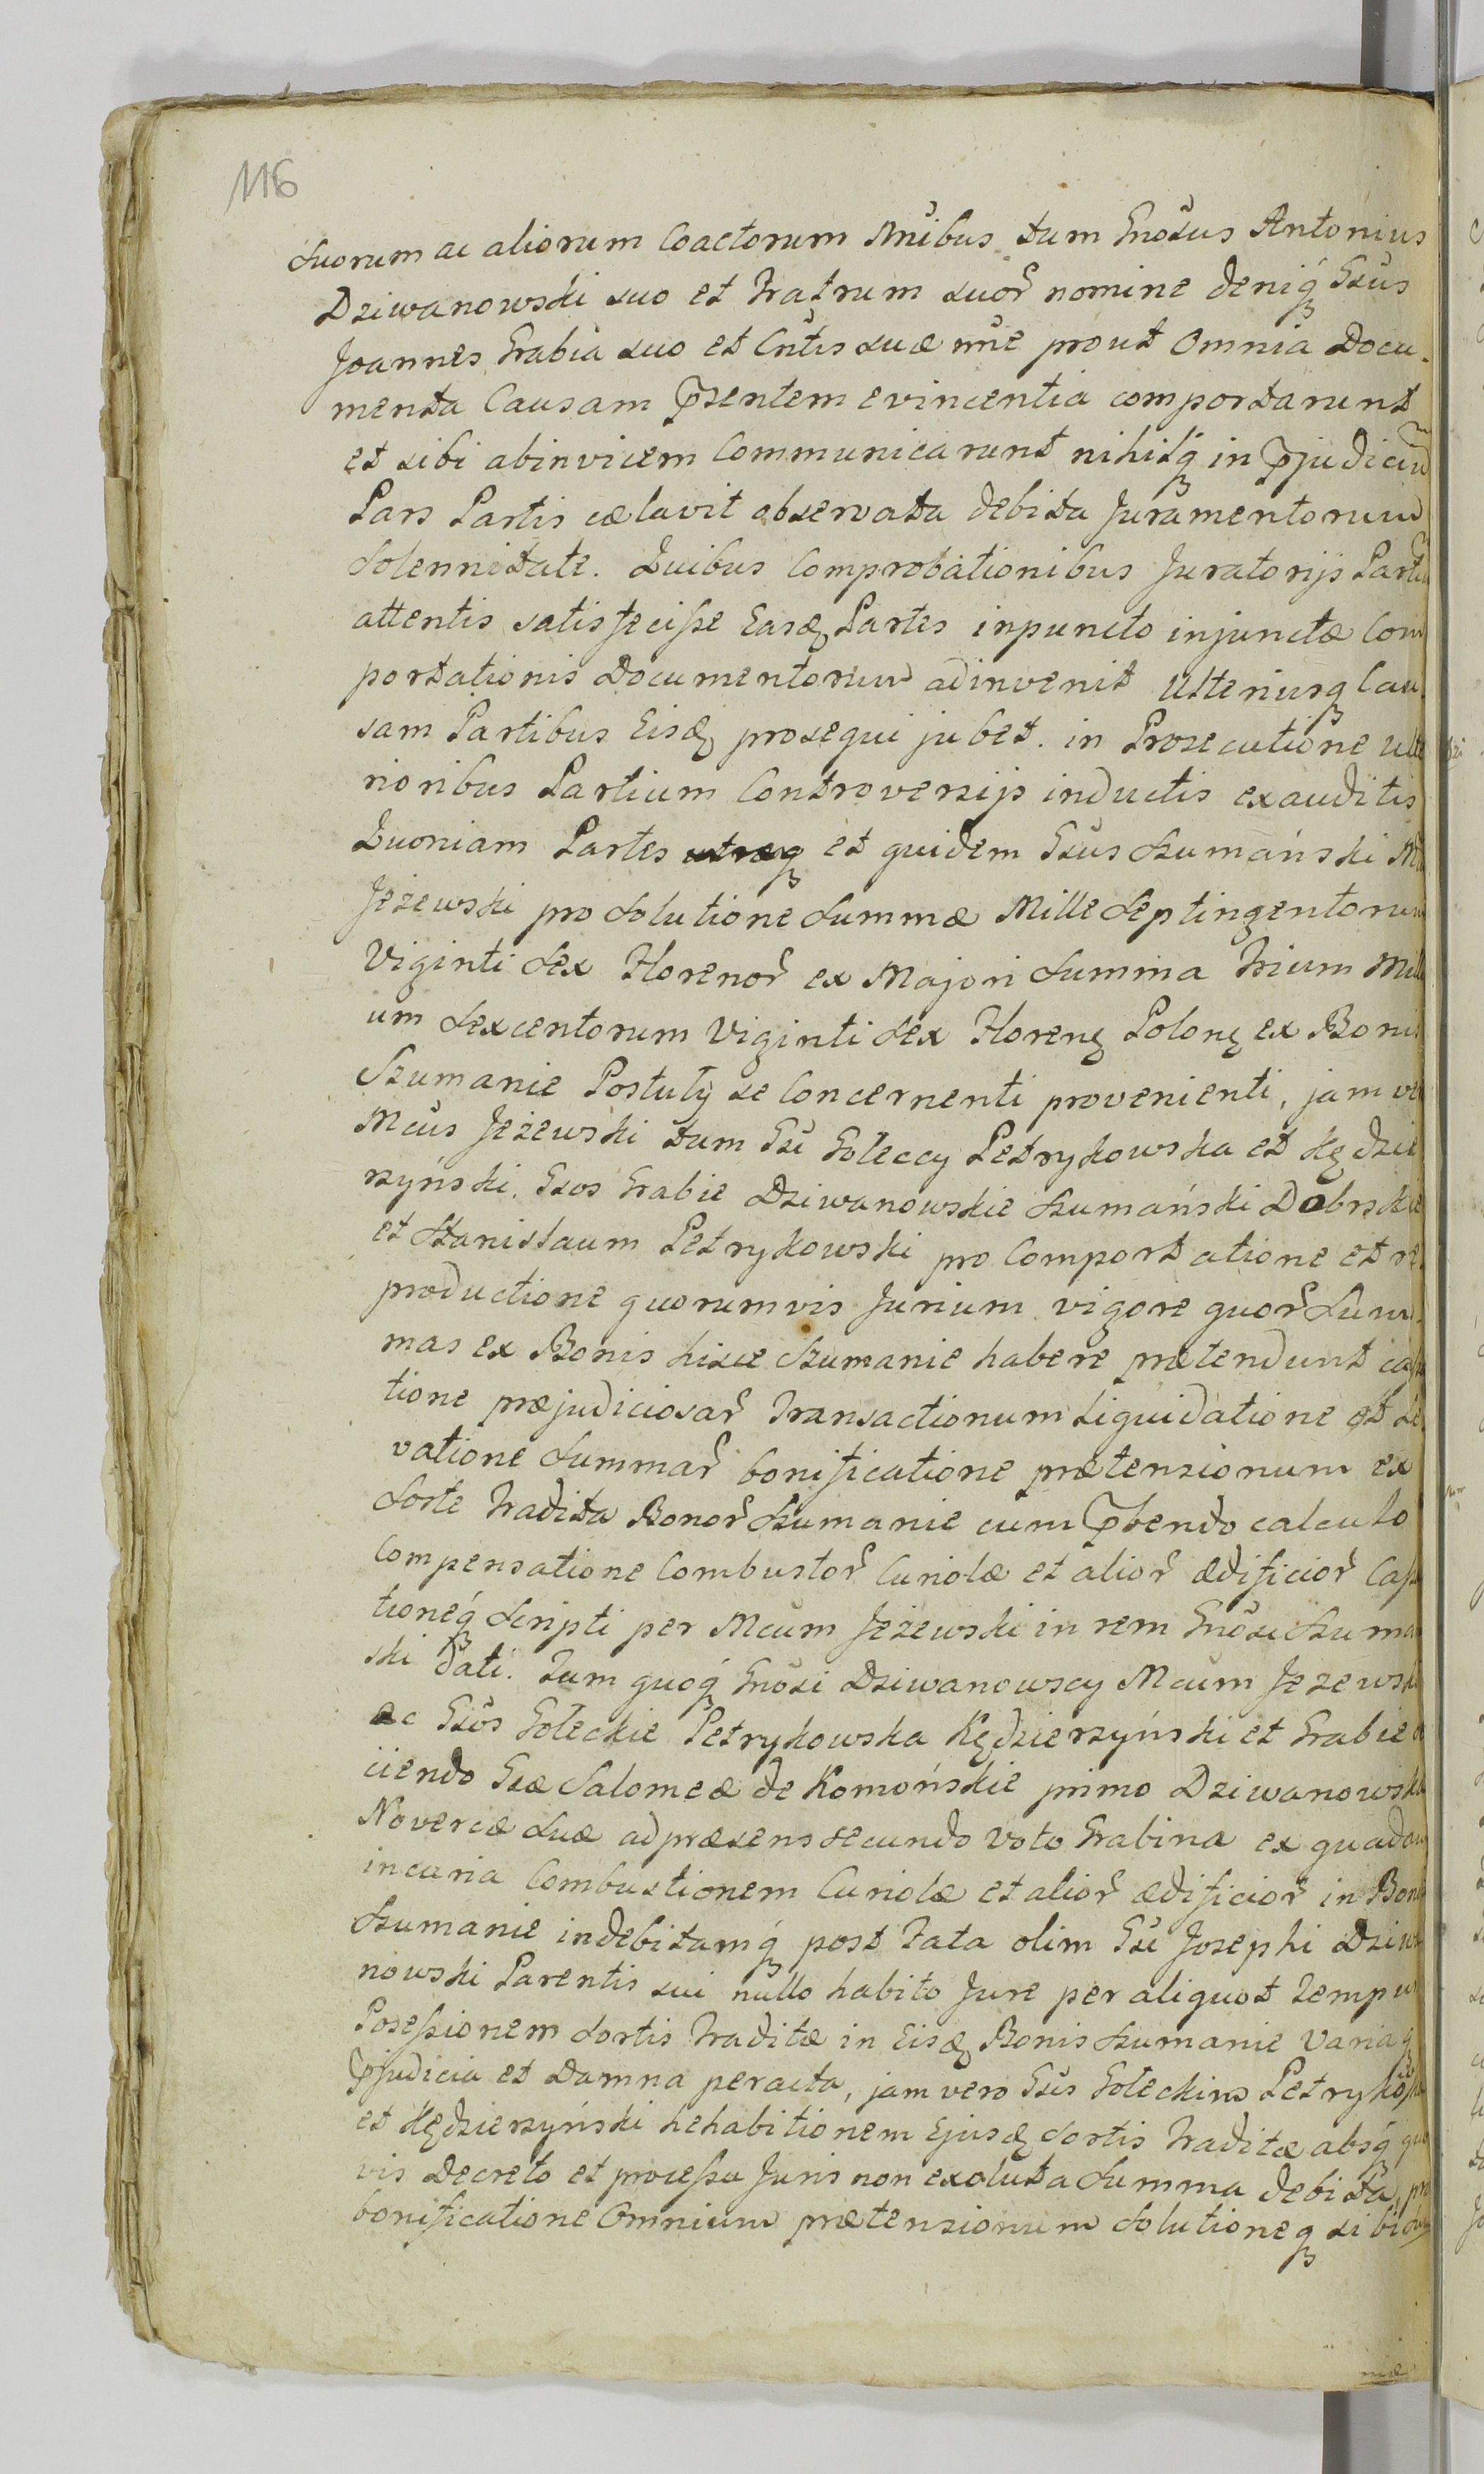 116
Suorum ac aliorum Coactorum Nnibus tum Gnosus Antonius
Dziwanowski suo et Fratrum suor nomine deniq Gsus
Joannes Grabia suo et Cntis suæ nne prout Omnia Docu-
menta Causam psentem evincentia comportarunt
et sibi abinvicem Communicarunt nihilq in pjudiciu
Pars Partis cælavit observata debita Juramentorum
Solennitate. Quibus Comprobationibus Juratorijs Partiu
attentis satisfecisse Easd Partes inpuncto injunctæ Com
portationis Documentorum adinvenit Ulteriusq Cau-
sam Partibus Eisd prosequi jubet. in Prosecutione ulte
rioribus Partium Controversijs inductis exauditis
Quoniam Partes utræq et quidem Gsus Szumański
Jeżewski pro Solutione Summæ Mille Septingentorum
Viginti Sex Florenor ex Majori Summa Trium Mill
um Sexcentorum Viginti Sex Floren Polon ex Bonis
Szumanie Postuły se Concernenti provenienti, jam ve
Mcus Jeżewski tum Gsi Goleccy Petrykowska et Kędzie
rzyński. Gsos Grabie Dziwanowskie Szumański Dobrskie
et Stanislaum Petrykowski pro Comportatione et re
productione quorumvis Jurium vigore quor Sum-
mas ex Bonis hisce Szumanie habere prætendunt cassa
tione præjudiciosar Transactionum Liquidatione et Le
vatione Summar bonificatione prætensionum ex
Sorte Tradita Bonor Szumanie cum phendo calculo
Compensatione Combustor Curiolæ et alior ædificior Cassa
tioneq Scripti per Mcum Jeżewski in rem Gnosi Szumań
ski dati. Tum quoq Gnosi Dziwanowscy Mcum Jezewski
ac Gsos Goleckie Petrykowska Kędzierzyński et Grabie
iiendo Gsæ Salomeæ de Komońskie primo Dziwanowska
Novercæ Suæ ad præsens secundo voto Grabina ex quadam
incuria Combustionem Curiolæ et alior ædificior in Bonis
Szumanie indebitamq post Fata olim Gsi Josephi Dziwa
nowski Parentis sui nullo habito Jure per aliquot Tempus
Possessionem Sortis Traditæ in Eisd Bonis Szumanie Variaq
pjudicia et Damna peracta, jam vero Gsis Goleckim Petryko
et Kędzierzyński hehabitionem Ejusd Sortis Traditæ absq quo
vis Decreto et processu Juris non exoluta Summa debita, pro
bonificatione Omnium prætensionum Solutioneq sibi
mæ